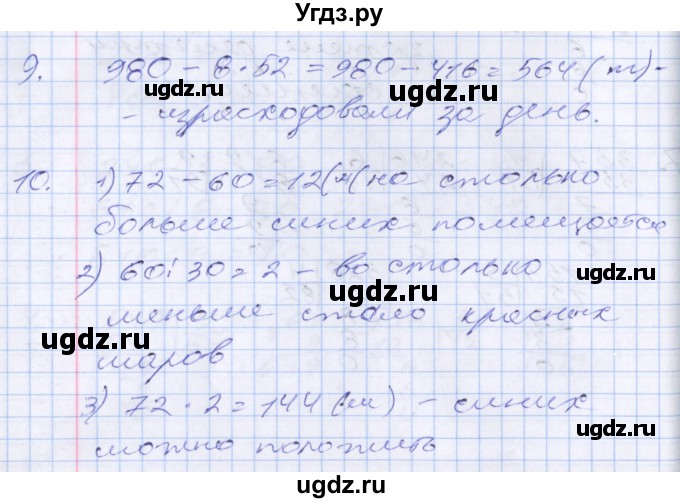 Угдз.ру
9. 980 – 8 · 52 = 980 – 416 = 564 (т) –
– израсходовали за день.
ugdz.ru
ugdz.ru
10. 1) 72 – 60 = 12 (ш) на столько
больше синих помещается
ugdz.ru
2) 60 : 30 = 2 – во столько
ugdz.ru
меньше стало красных
ugdz.ru
шаров
ugdz.ru
3) 72 · 2 = 144 (ш) – синих
ugdz.ru
можно положить
ugdz.ru